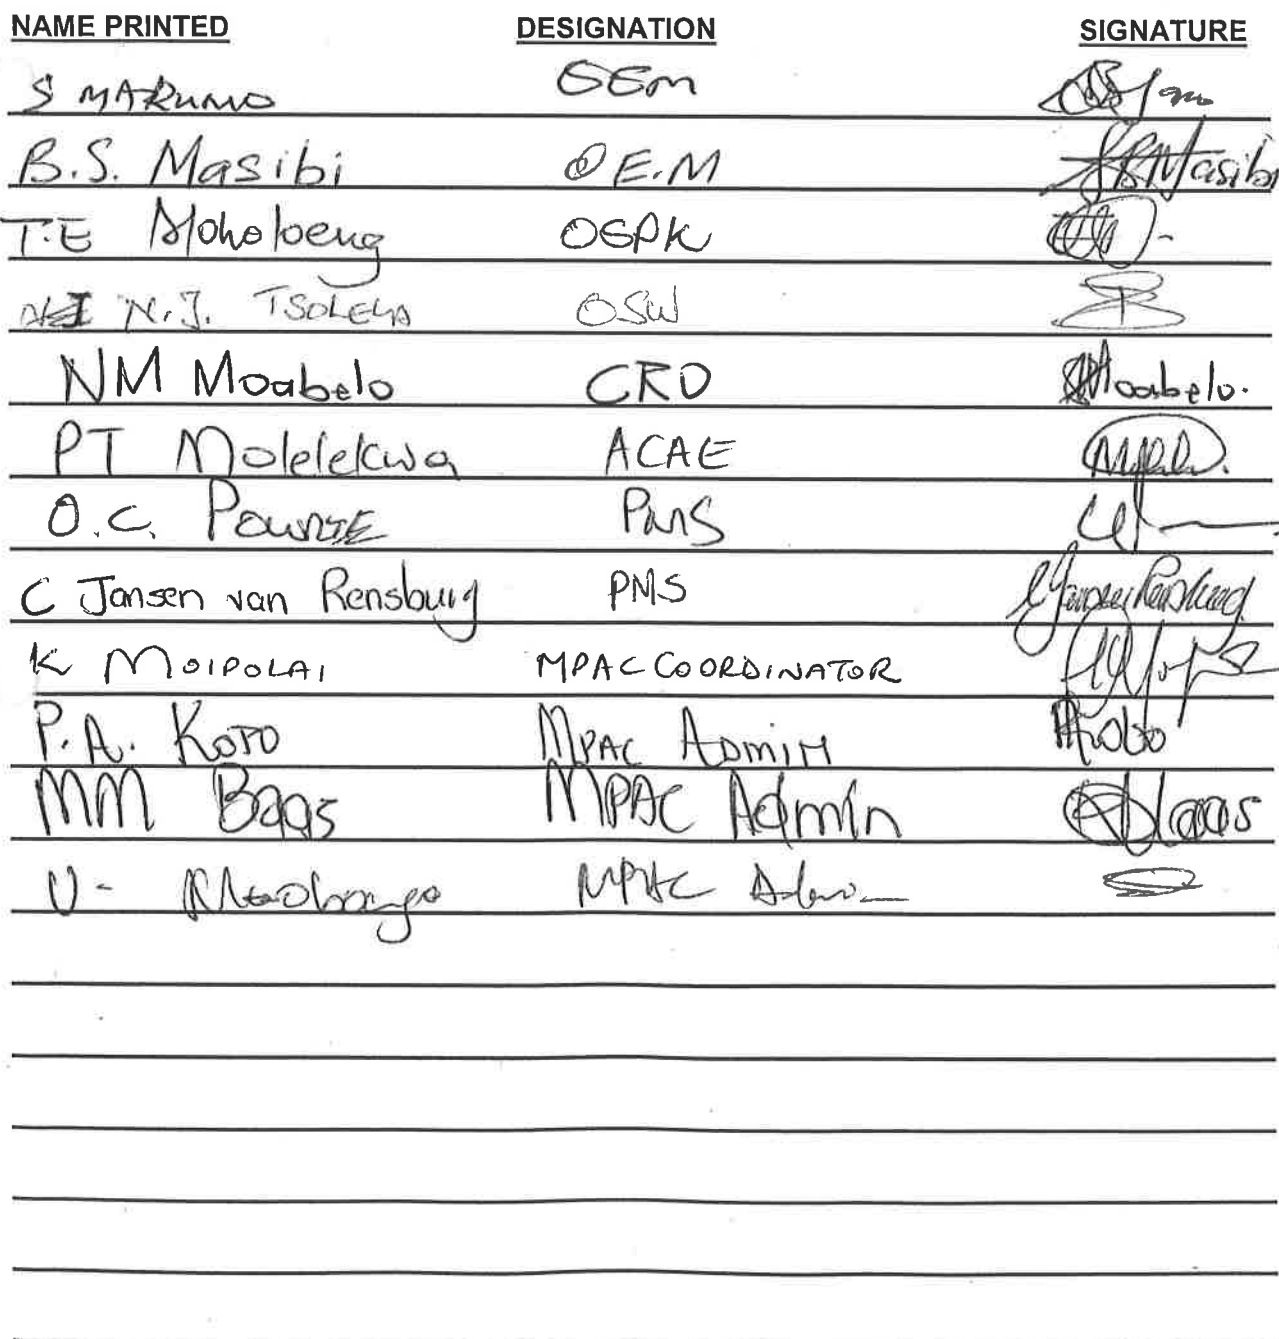 NAME PRINTED DESIGNATION SIGNATURE
S MARUMO GEM
B.S. Masibi O E.M Masibi
T.E Moholoeng OSPK
N.J. TSOLELA OSW
NM Moabelo CRO Moabelo.
PT Molelekwa ACAE
O.C. POWNIE PMS
C Jansen van Rensburg PMS
K MOIPOLAI MPAC COORDINATOR
P.A. KOTO MPAC ADMIN
MM Baas MPAC Admin Baas
U - MPAC